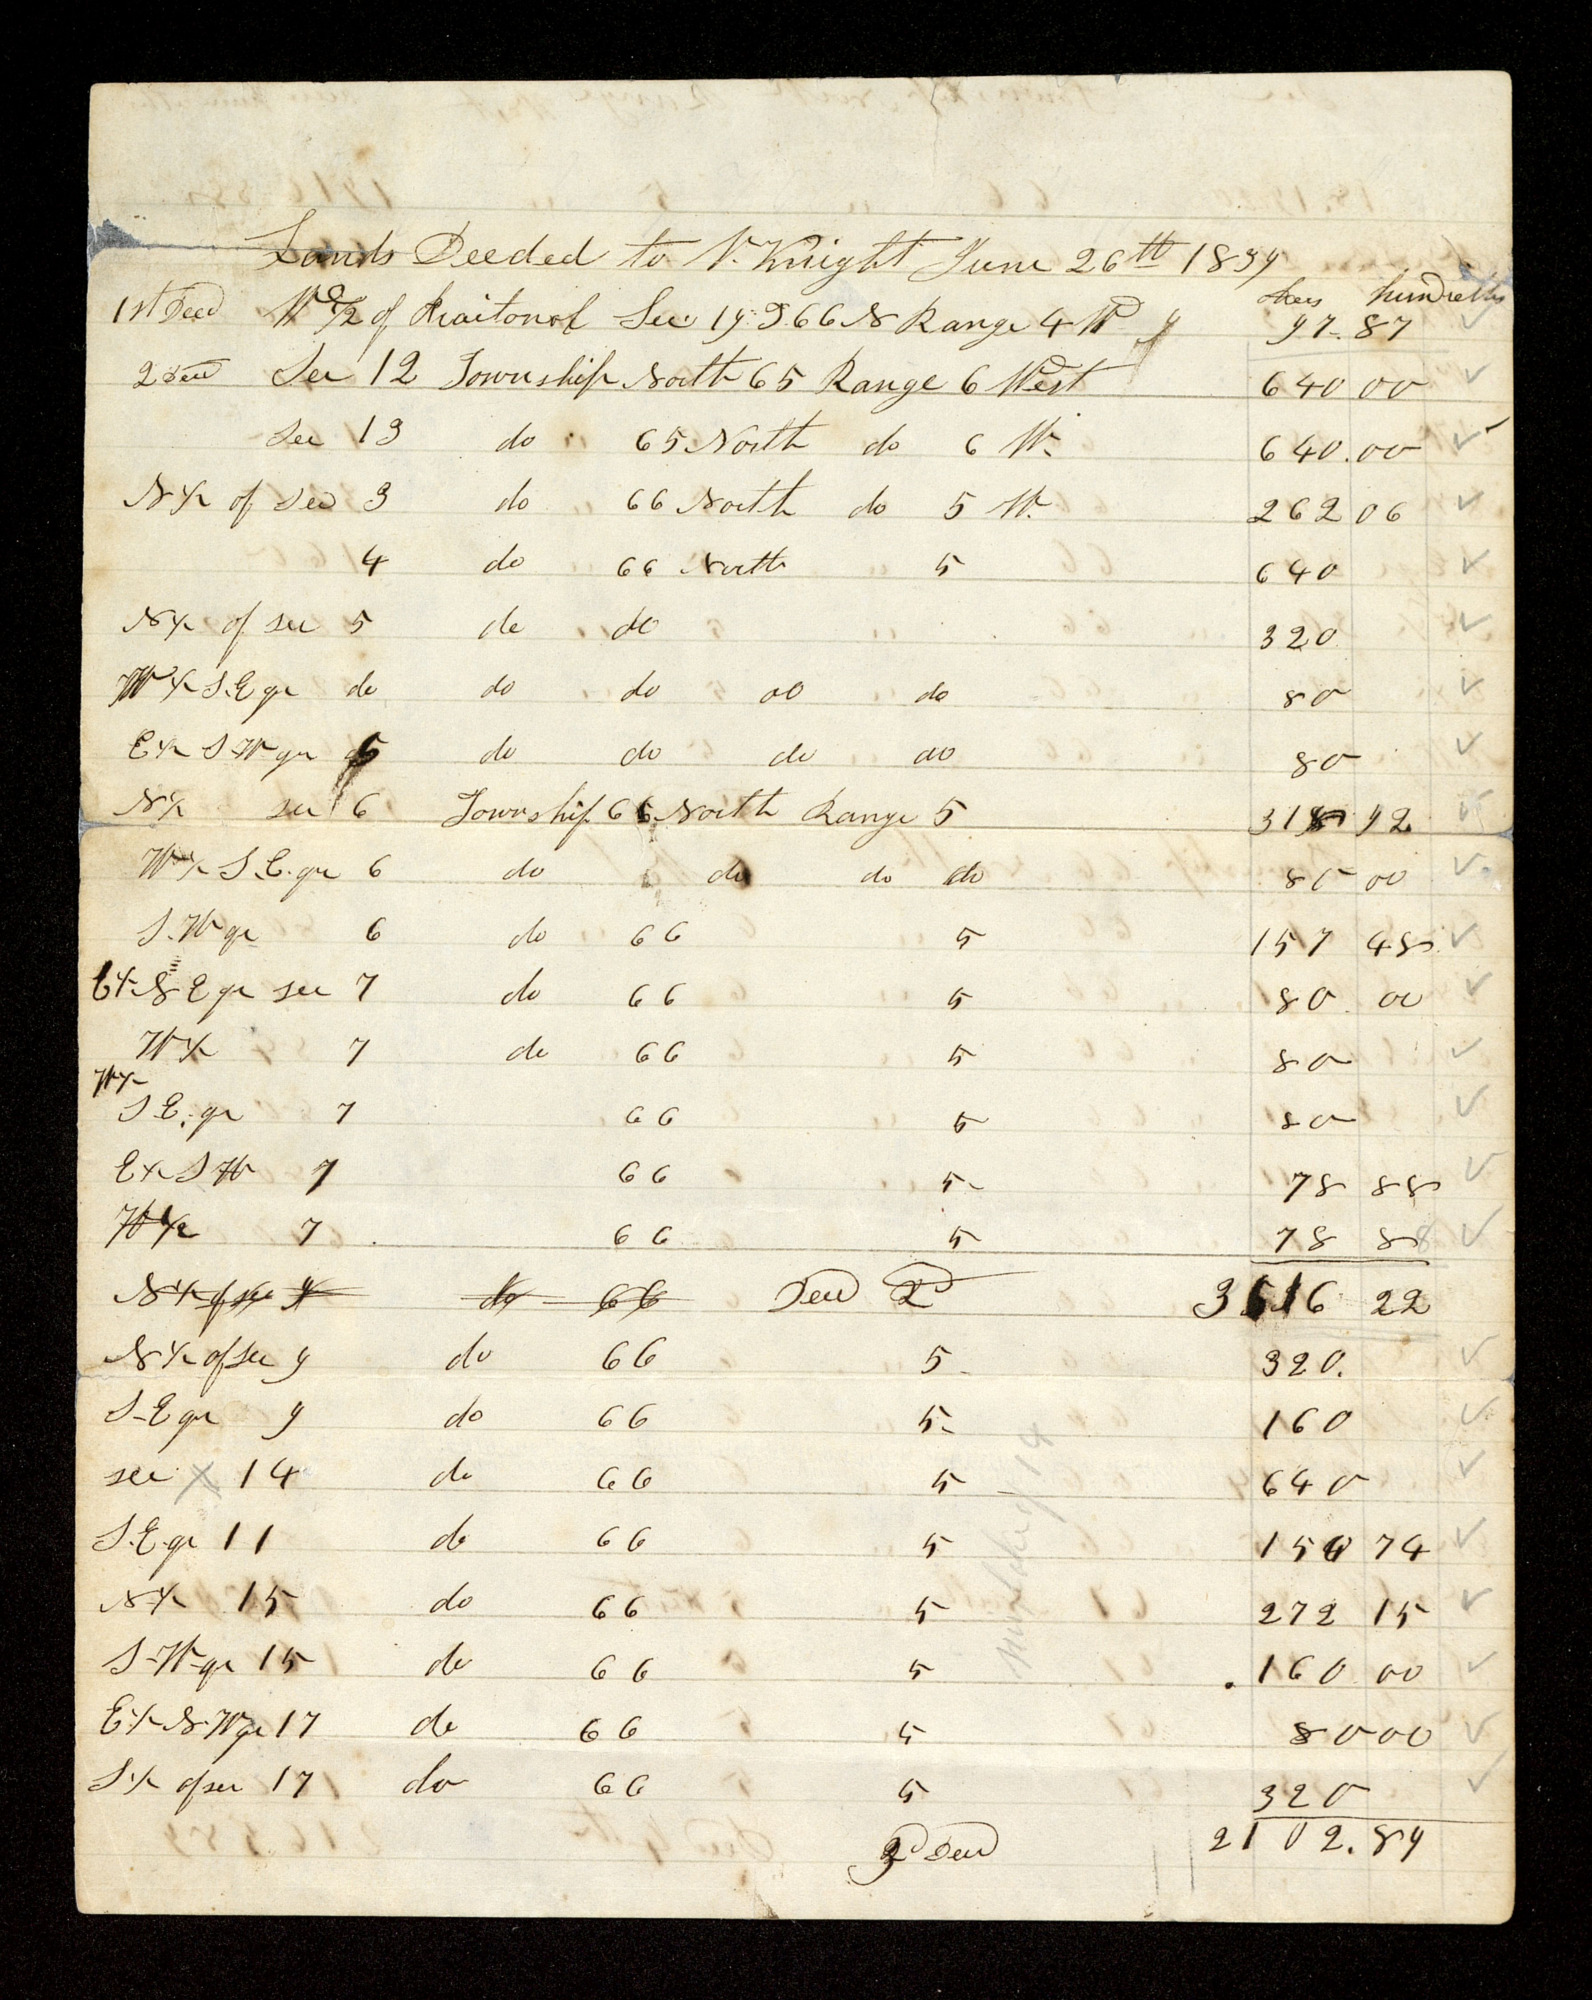 Lands Deeded to V. Knight June 26th 1839
Acres hundredths
1st Deed W 1/2 of Sec 19 T. 66 N Range 4 W 97.87
2 Deed Sec 12 Township North 65 Range 6 West 640 00
Sec 13 do 65 North do 6 W. 640.00
N 1/2 of Sec 3 do 66 North do 5 W. 262 06
4 do 66 North 5 640
N 1/2 of sec 5 do do 320
W 1/2 S.E qr do do do do do 80
E 1/2 S W qr 5 do do do do 80
N 1/2 sec 6 Township 66 North Range 5 318 92
W 1/2 S.E. qr 6 do do do do 80 00
S. W qr 6 do 66 5 157 48
E 1/2 N E qr sec 7 do 66 5 80 00
W 1/2 7 do 66 5 80
W 1/2
S E. qr 7 66 5 80
E 1/2 S W 7 66 5 78 88
W 1/2 7 66 5 78 88
N 1/2 of sec 9 do 66 Deed 2d 3616 22
N 1/2 of sec 9 do 66 5 320.
S-E qr 9 do 66 5 160
sec X 14 do 66 5 640
S.E. qr 11 do 66 5 150 74
N 1/2 15 do 66 5 272 15
S-W-qr 15 do 66 5 160 00
E 1/2 N-W qr 17 do 66 5 80 00
S 1/2 of sec 17 do 66 5 320
3d Deed 2102.89